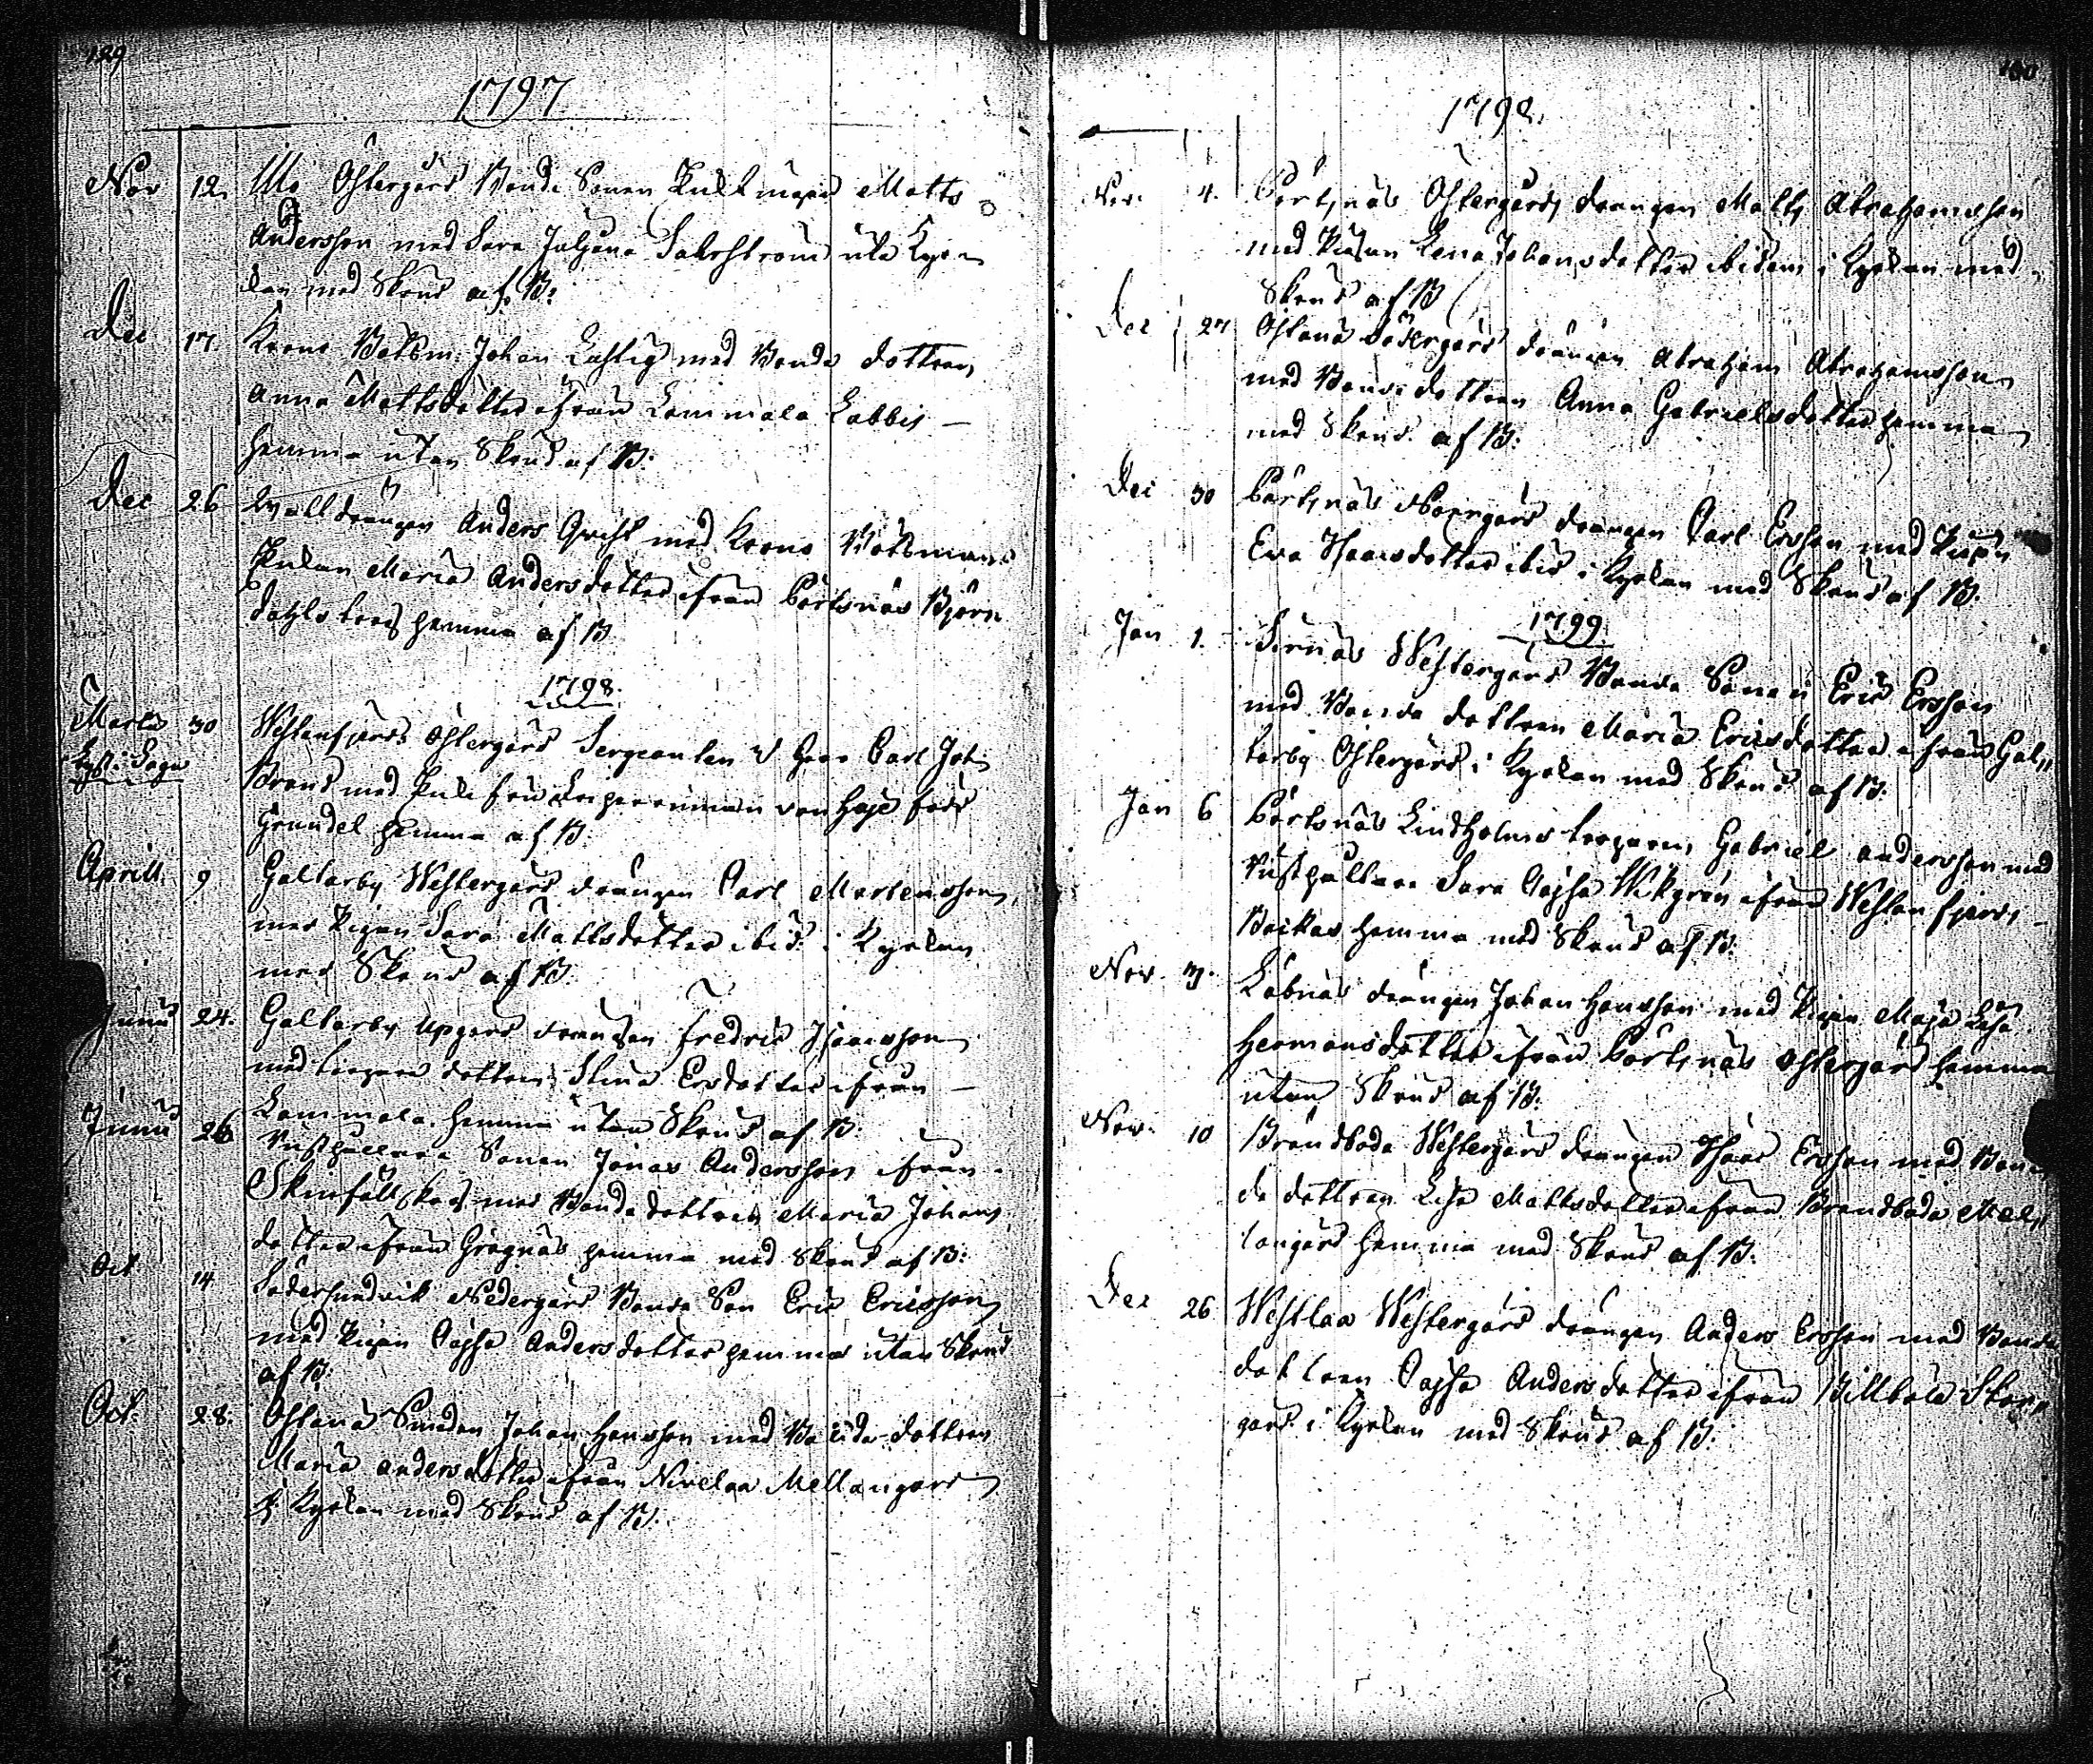 129
1797
Nov 12. Mo Östergårds Bonde Sonen Rusthnapn Matts
Andersson med Sara Juliana Sahlström uti Kyr-
kan med Skrud af B:
Dec 17. Krono Båtsm: Johan Lustig med Bonde dottren
Anna Mattsdotter ifrån Lammala Labbis
hemma utan Skrud af B:
Dec 26 drängen Anders Qvist med Krono Båtsmans
Enkan Maria Andersdotter ifrån Pörtsnäs Björn
dahls torp hemma af B
1798.
Martii 30 Westanfjärds Östergård Sergeanten V Herr Carl Joh
lyst i Sagu
Brand med Enkefru von Haje född
Grundel hemma af B:
Aprill. 9 Galtarby Westergårds drängen Carl Mårtensson
med Pigan Sara Mattsdotter ibid: i Kyrkan
med Skrud af B.
Junii 24. Galtarby Uppgård drängen Fredric Isacsson
med dottren Stina Ersdotter ifrån
Lammala. hemma utan Skrud af B.
Junii 26 Rusthållare Sonen Jonas Andersson ifrån
Skinfalls med Bonde dottren Maria Johans
dotter ifrån Grägnäs hemma med Skrud af B:
Oct 14 Södersundvik Nedergårds Bonde Son Eric Ericsson
med Pigan Cajsa Andersdotter hemma utan Skrud
af B:
Oct. 28. Östanå Smeden Johan Hansson med Bonde dottren
Maria Andersdotter ifrån Nivelax Mellangård
i Kyrkan med Skrud af B.
130
1798.
Nov. 4. Pörtsnäs Östergårds drängen Matts Abrahamsson
med Pigan Lena Johansdotter ibidem i Kyrkan med
Skrud af B
Dec 27 Östanå Södergårds drängen Abraham Abrahamsson
med Bonde dottren Anna Gabrielsdotter hemma
med Skrud af B:
Dec 30 Pörtsnäs Norrgårds drängen Carl Ersson med Pigan
Eva Isaacsdotter ibid i Kyrkan med Skrud af B.
1799.
Jan 1. Sirnäs Westergårds Bonde Sonen Eric Ersson
med Bonde dottren Maria Ericsdotter ifrån Gal„
tarby Östergård i Kyrkan med Skrud af B:
Jan 6 Pörtsnäs Lindholms torparen Gabriel Andersson med
Rusthållare Sara Cajsa Wikgren ifrån Westanfjärds
Backas hemma med Skrud af B:
Nov. 3. Låbnäs drängen Johan Hansson med Pigan Maja Lisa
Hermansdotter ifrån Pörtsnäs Östergård hemma
utan Skrud af B:
Nov. 10 Brändboda Westergårds drängen Isaac Ersson med Bon
de dottren Lisa Mattsdotter ifrån Brändboda Mel„
langård hemma med Skrud af B:
Dec 26 Westlax Westergårds drängen Anders Ersson med Bonde
dottren Cajsa Andersdotter ifrån Billböle Stor„
gård i Kyrkan med Skrud af B: